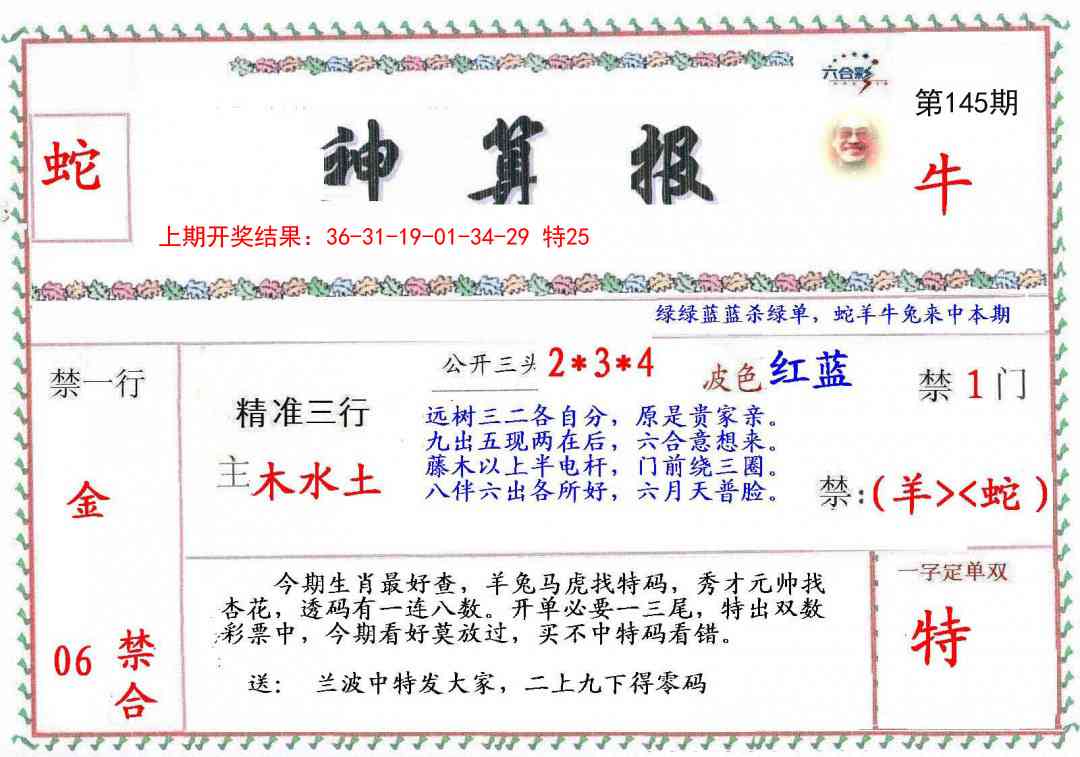 六合彩
第145期
蛇
神算报
牛
上期开奖结果：36-31-19-01-34-29 特25
绿绿蓝蓝杀绿单，蛇羊牛兔来中本期
禁一行
公开三头 2*3*4
波色 红蓝
禁 1 门
精准三行
远树三二各自分，原是贵家亲。
九出五现两在后，六合意想来。
藤木以上半电杆，门前绕三圈。
八伴六出各所好，六月天普脸。
主 木水土
金
禁:(羊><蛇)
今期生肖最好查，羊兔马虎找特码，秀才元帅找
杏花，透码有一连八数。开单必要一三尾，特出双数
彩票中，今期看好莫放过，买不中特码看错。
送： 兰波中特发大家，二上九下得零码
一字定单双
特
06 禁合